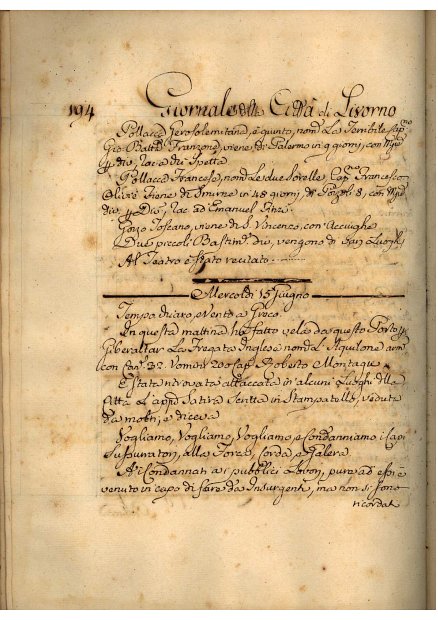 194 Giornale della Città di Livorno
Pollacca Jerosolemitana, è giunto, nom.ta La Terribile Cap.no
Gio Batta Franzone, viene di Palermo in 9 giorni, con
Pollacca Francese, nom.ta Le due Sorelle, Cap.no Francesco
viene di Smirne in 48 giorni,
ad Emanuel Finzi
Gozo Toscano, viene di S. Vincenzo, con Acciughe
Due piccoli Bastim.ti che vengono di Lari Luoghi
Al Teatro è stato recitato
Mercoldì 15 Giugno
Tempo chiaro, e Vento a Greco
In questa mattina hà fatto vela da questo Porto p
Gibraltar La Fregata Inglese nom.ta L'Aquilone arm
con Can. 32. Vomini 200 Cap. Roberto Montagu
È stata ritrovata attaccata in alcuni Luoghi della
Città L'app.a Sativa Scritta in Stampatello, veduta
da molti, e diceva
Vogliamo, Vogliamo, Vogliamo, e Condanniamo i Capi
Sussuratori, alla Forca, Corda, e Galera
Ai Condannati a i pubblici Lavori, pure ad essi è
venuto in capo di fare da Insurgenti, ma non si sono
ricordati